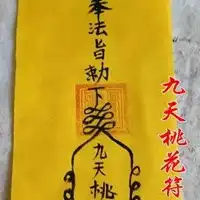 奉法旨勅下
九天桃
九天桃花符